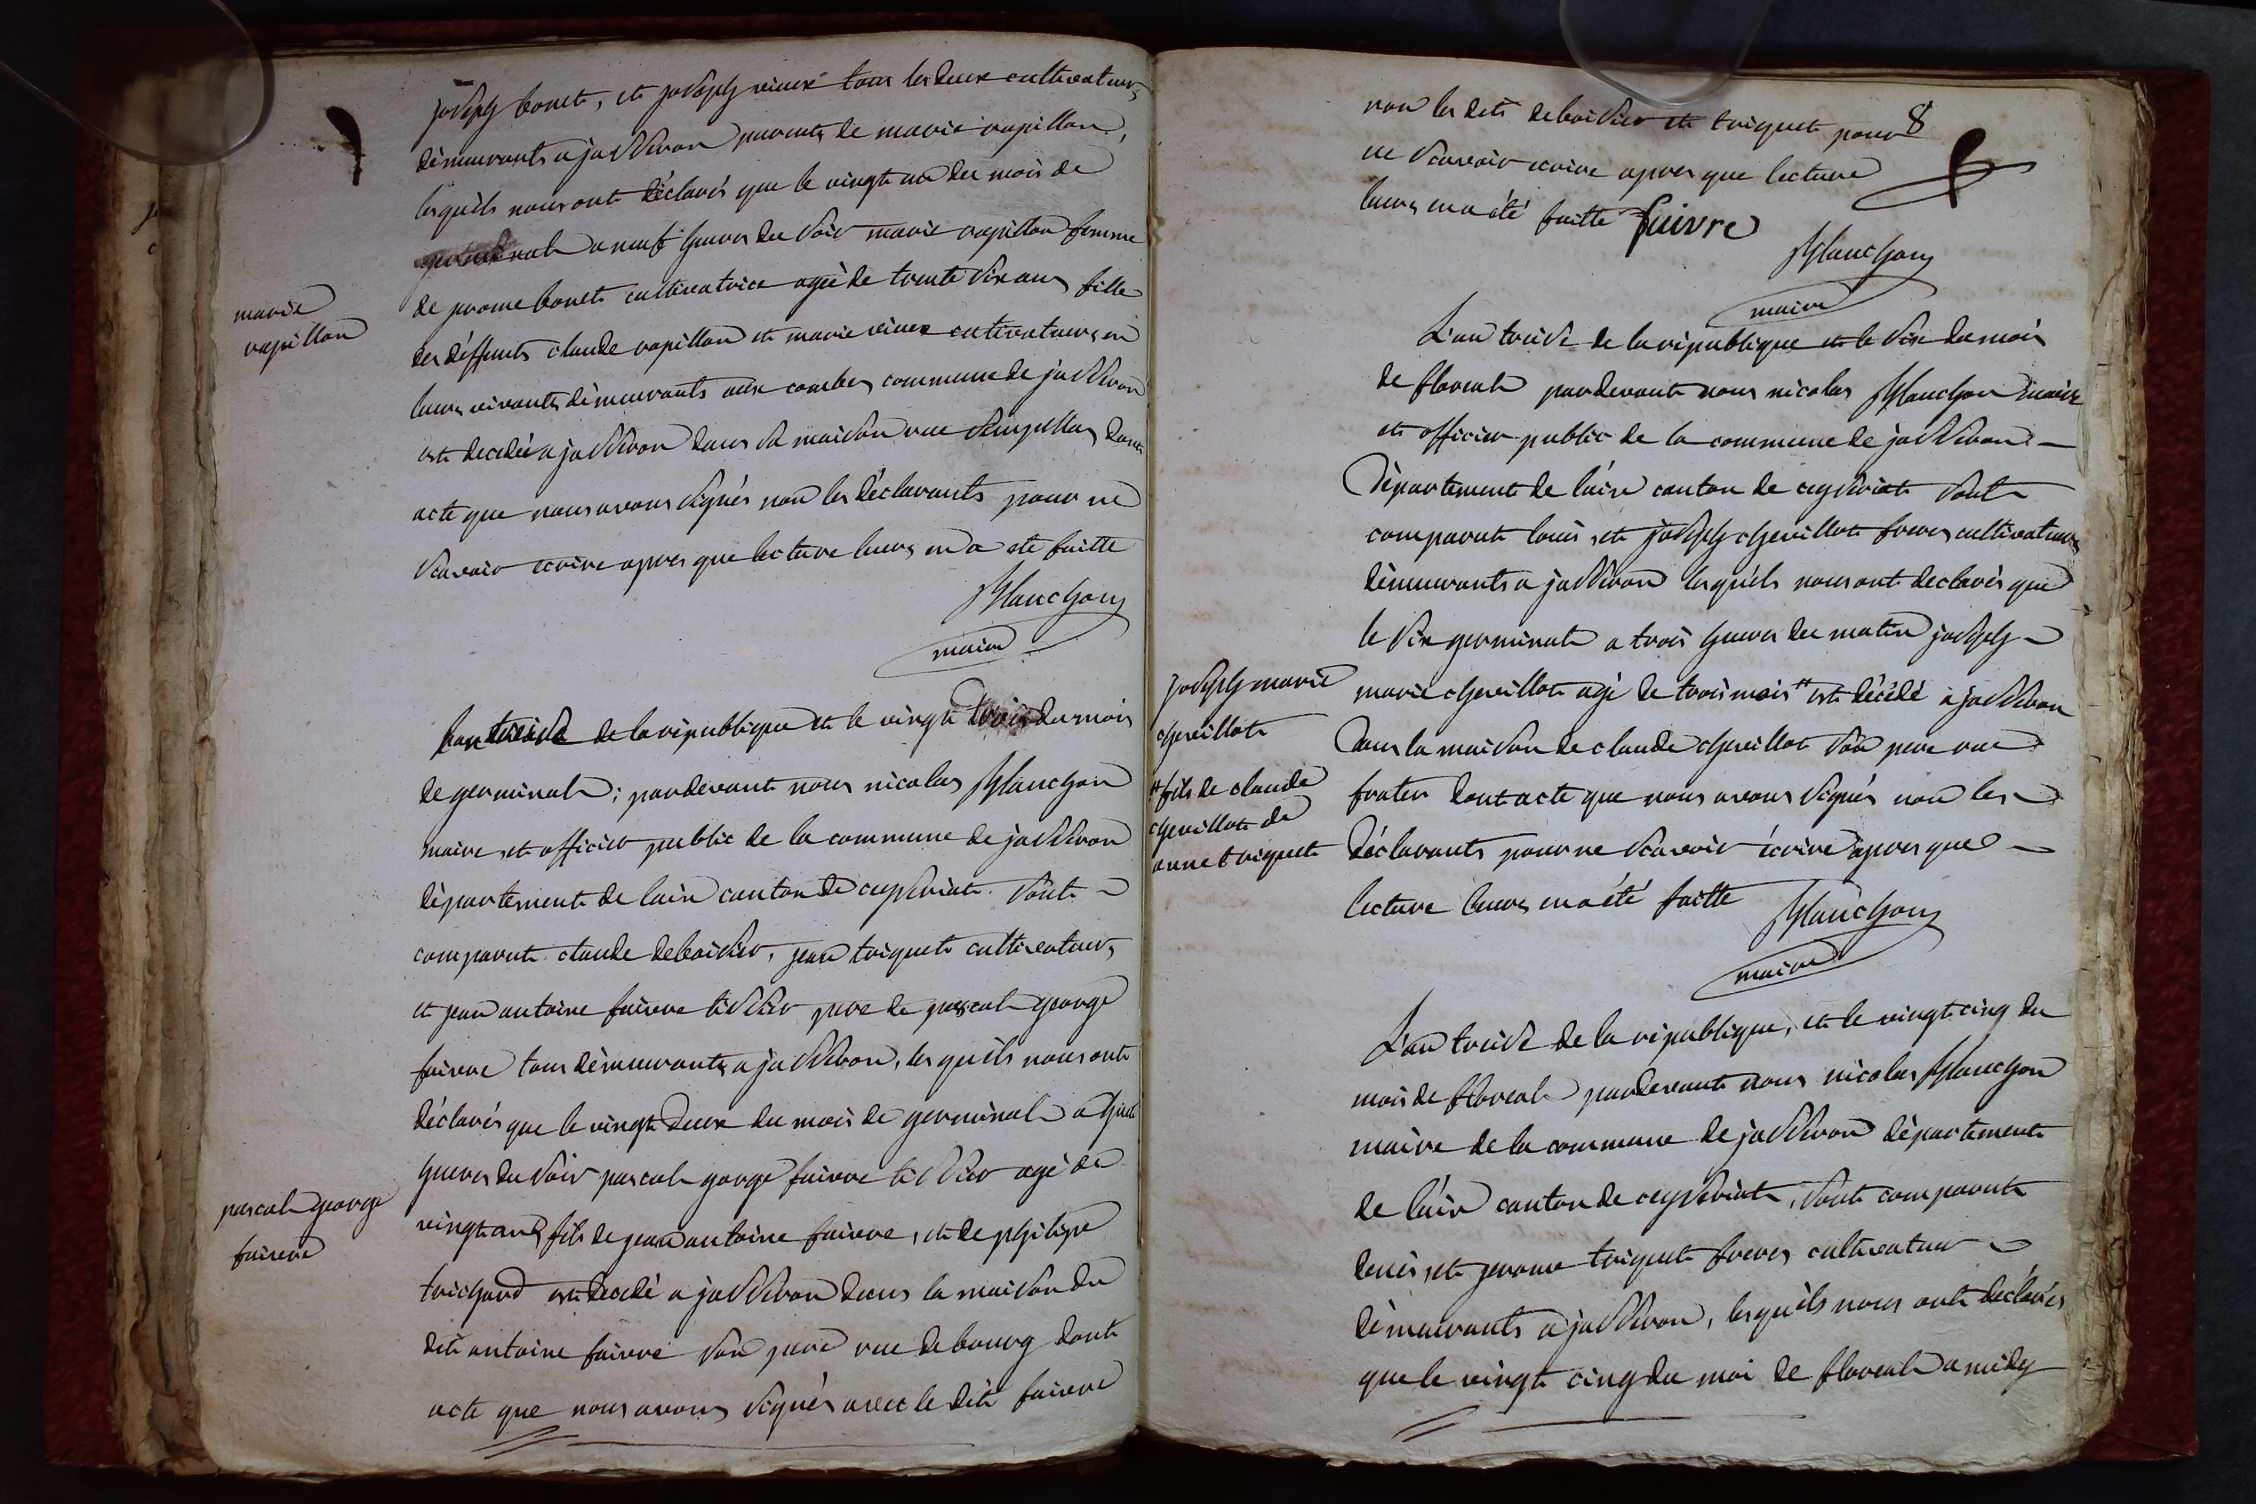 joseph bouet, et joseph vieux tous les deux cultivateurs
démeurants a jasseron parents de marie rapillon,
lesquéls nous ont déclarés que le vingt un du mois de
germinal a neuf heures du soir marie rapillon femme
de jerome bouet cultivatrice agée de trente six ans fille
marie
rapillon
des déffunts claude rapillon et marie vieux cultivateurs en
leurs vivants démeurants aux combes commune de jasseron
est decedée a jasseron dans sa maison rue dont
acte que nous avons signés non les déclarants pour ne
scavoir ecrire apres que lecture leurs en a eté faitte
Blanchon
maire
L'an treise de la république et le vingt trois du mois
de germinal; pardevant nous nicolas Blanchon
maire et officier public de la commune de jasseron
département de lain canton de ceyseriat. sont
comparut claude deboissier, jean triquet cultivateurs
et jean antoine faivre tissier pere de pascal george
faivre tous démeurants a jasseron, lesquéls nous ont
déclarés que le vingt deux du mois de germinal a huit
heures du soir pascal gorge faivre tissier agé de
pascal george
faivre
vingt ans fils de jean antoine faivre, et de philipe
trichard est decedé a jasseron dans la maison du
dit antoine faivre son pere rue de bourg dont
acte que nous avons signés avec le dit faivre
8
non les dits deboissier et triquet pour
ne scavoir ecrire apres que lecture
leurs en a été faitte faivre
Blanchon
maire
L'an treise de la république et le six du mois
de floreal pardevant nous nicolas Blanchon maire
et officier public de la commune de jasseron
Département de l'ain canton de ceyseriat sont
comparut louis, et joseph chevillot freres cultivateurs
démeurants a jasseron lesquéls nous ont declarés que
le six germinal a trois heures du matin joseph
joseph marie
chevillot
marie chevillot agé de trois mois # est décédé a jasseron
dans la maison de claude chevillot son pere rue
# fils de claude
chevillot de
anne triquet
frater dont acte que nous avons signés non les
déclarants pour ne scavoir écrire apres que
lecture leurs en a été faitte
Blanchon
maire
L'an treise de la république, et le vingt cinq du
mois de floreal pardevant nous nicolas Blanchon
maire de la commune de jasseron département
de l'ain canton de ceyseriat, sont comparut
denis, et jerome triquet freres cultivateur
démeurants a jasseron, lesquéls nous ont déclarés
que le vingt cinq du moi de floreal a midy